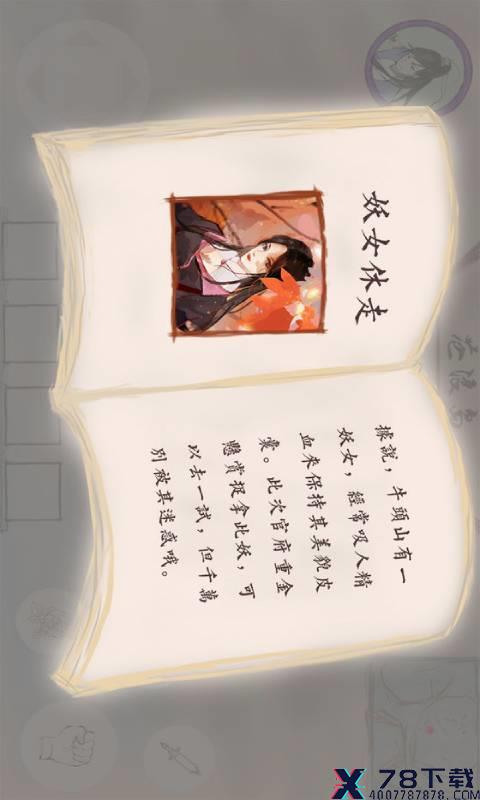 妖女休走
據説，牛頭山有一
妖女，經常吸人精
血來保持其美貌皮
囊。此次官府重金
懸賞捉拿此妖，可
以去一試，但千萬
別被其迷惑哦。
78下载
4007787878.COM